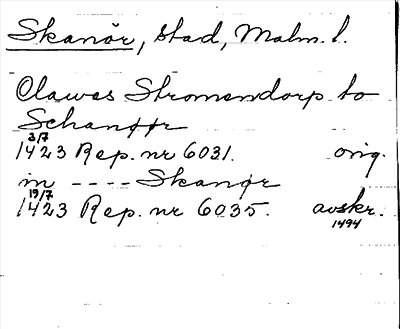 Skanör, stad, Malm. l.
Clawes Stromendorp to
Schanøør
3/7
1423 Rep. nr 6031. orig.
in ---- Skanør
19/7
1423 Rep. nr 6035. avskr.
1494